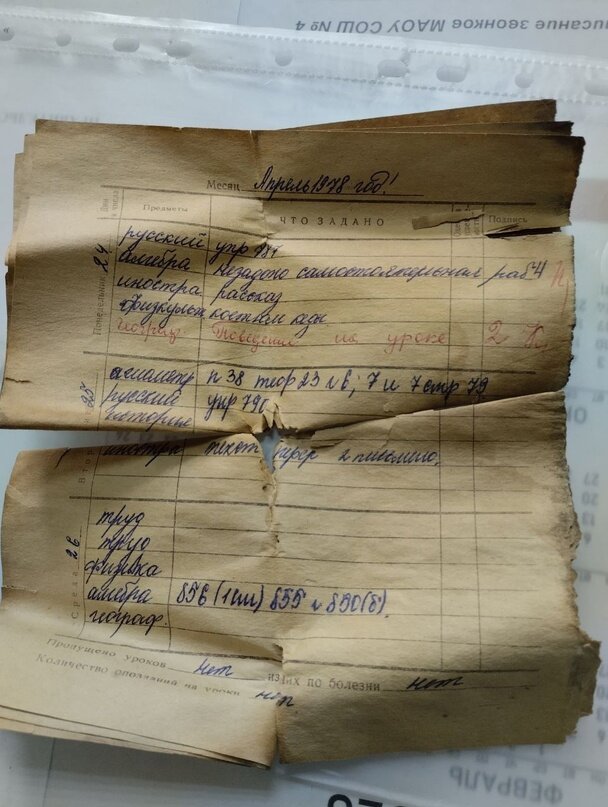 писание звонков МАОУ СОШ № 4
Месяц Апрель 1978 год!
Предметы ЧТО ЗАДАНО Подпись
Понедельник 24
русский упр 787
алгебра незадано самостоятельная раб 4
иностра рассказ
физкульт костюм кеды
географ. Поведение на уроке 2
25
геометр п 38 теор 23 и в; 7 и 7 стр 79
русский упр 790
история
иностра текст 2 письмино.
Среда 26
труд
труд
физика
алгебра 856 (1ст) 855 и 850(б).
географ.
Пропущено уроков нет из них по болезни нет
Количество опозданий на уроки нет
ФЕВРАЛЬ